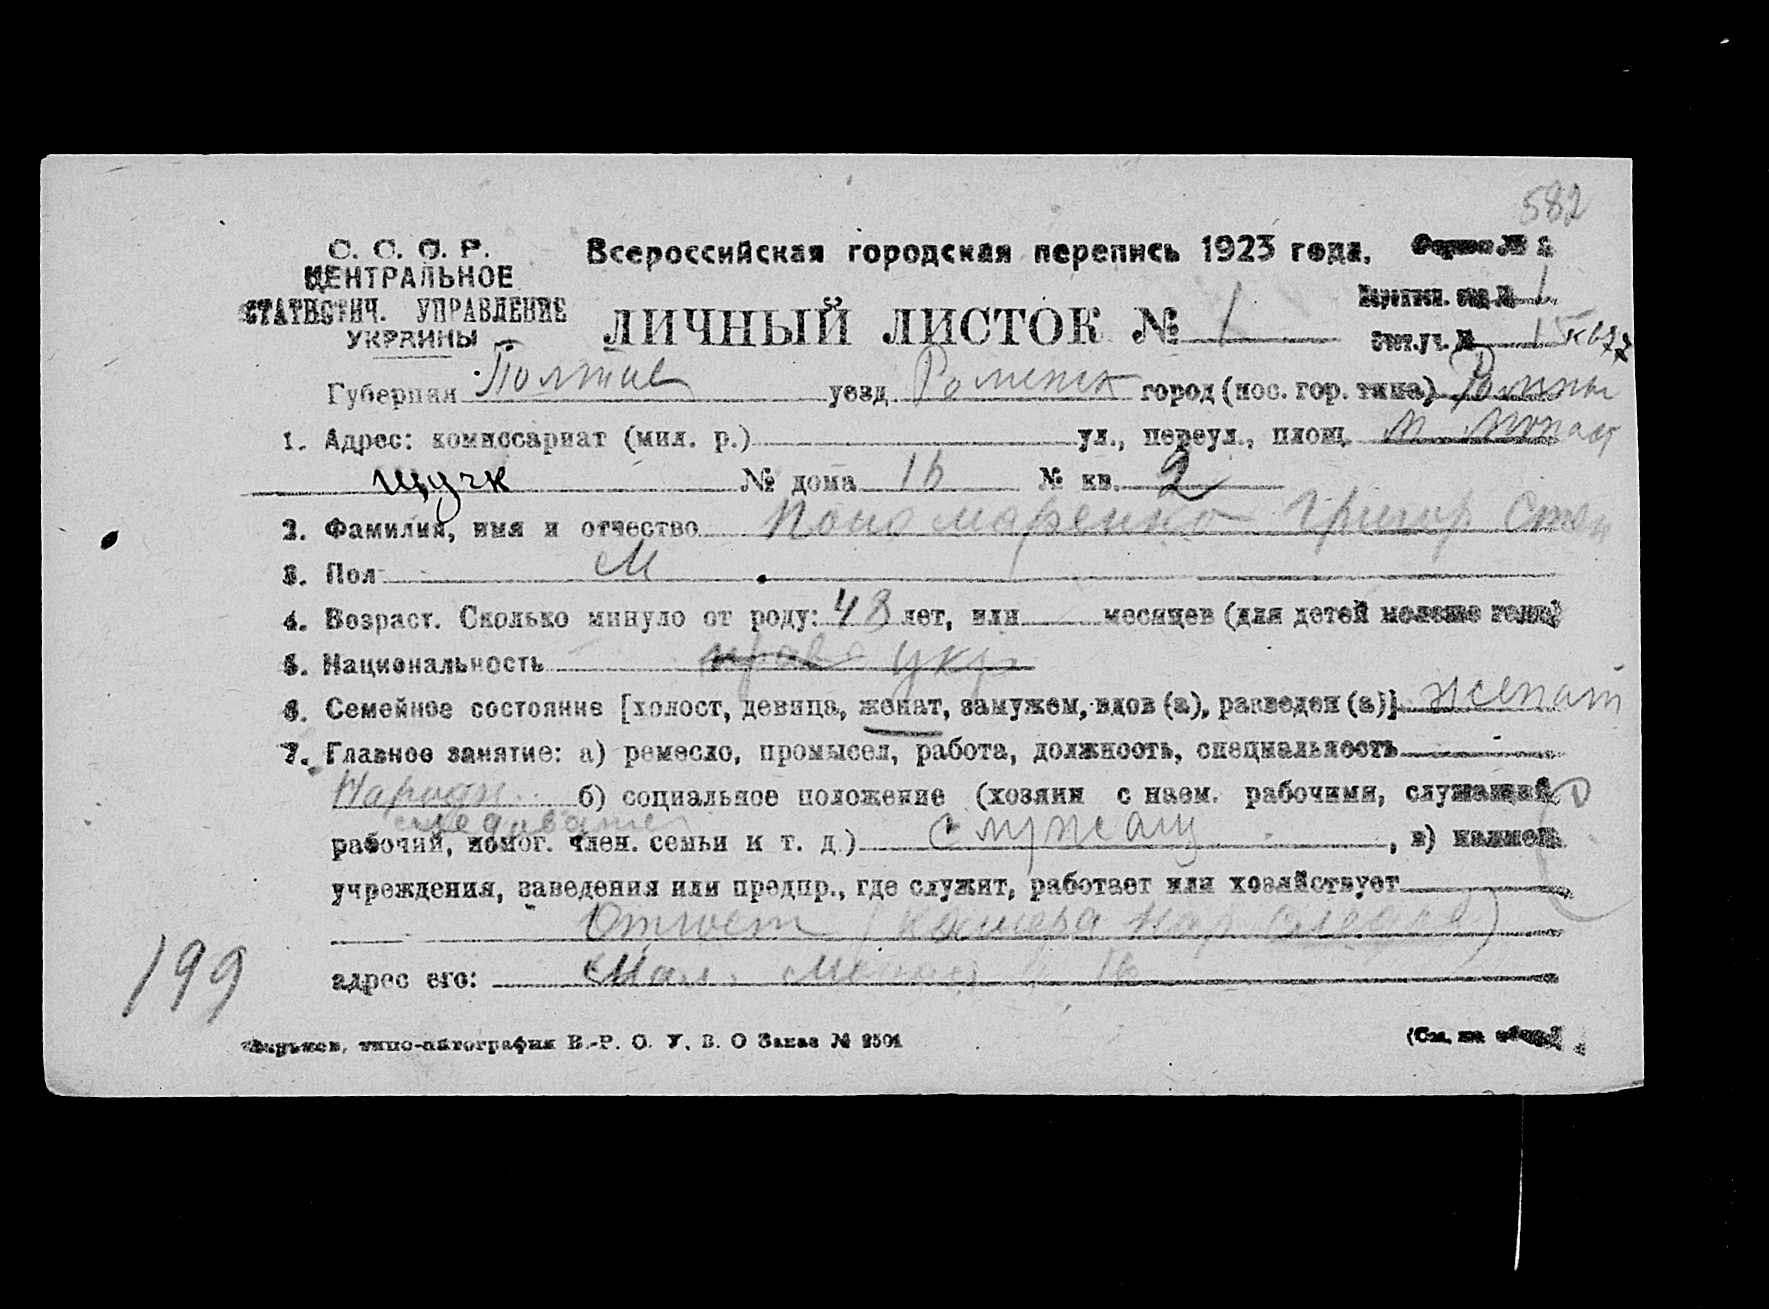 582
С. С. С. Р. Всероссийская городская перепись 1923 года. Форма № 2
ЦЕНТРАЛЬНОЕ
СТАТИСТИЧ. УПРАВЛЕНИЕ
УКРАИНЫ
ЛИЧНЫЙ ЛИСТОК № 1
отд. № 1
уч. № 15
Губерния Полтав уезд Роменск город (пос. гор. типа) Ромны
1. Адрес: комиссариат (мил. р.) ул., переул., площ. М. Монаст
№ дома 16 № кв. 2
2. Фамилия, имя и отчество Пономаренко Григор Степ
3. Пол М
4. Возраст. Сколько минуло от роду: 48 лет, или месяцев (для детей моложе года)
5. Национальность право укр
6. Семейное состояние [холост, девица, женат, замужем, вдов (а), разведен (а)] женат
7. Главное занятие: а) ремесло, промысел, работа, должность, специальность
Народн. б) социальное положение (хозяин с наем. рабочими, служащий,
следователь
рабочий, помог. член. семьи и т. д.) служащ , в) наимен.
учреждения, заведения или предпр., где служит, работает или хозяйствует
(Камера Нар следов)
адрес его: Мал. Монаст 16
199
Харьков, типо-литография В.-Р. О. У. В. О Заказ № 2501
(См. на обор.)